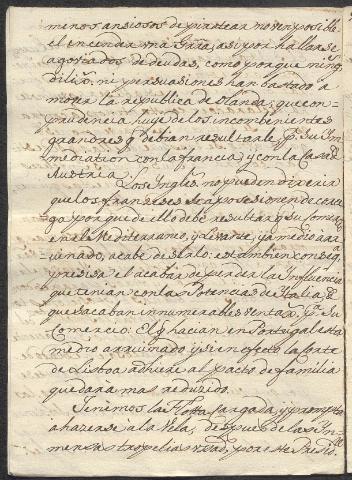 menos ansiosos de piratear no ven posible
el encender una Grra, asi por hallarse
agoviados de deudas, como porque ning.
Dilix.a ni persuasiones han bastado a
mover la republica de Olanda, que con
prudencia huie de los incombenientes
grandres q. debian resultarle p.r su In
mediation con la francia, y con la Casa de
Austria.
Los Ingls. no pueden dixerir
que los franseses se aposessionen de
por que de ello debe resultar q. su Comerc.
en el Mediterraneo, y Levante, ya medio arru
inado, acabe de serlo: es tambien conseq.
presisa el acabar de perder la Influencia
que tenian con las Potencias de Italia, de
que sacaban innumerables ventax.s p.a su
Comercio: El q. hacian en Portugal esta
medio arruinado y si en efecto la corte
de Lisboa adhiere al pacto de familia
quedara mas reducido.
Tenemos la Flota cargada, y prompta
a hazerse a la Vela, despues de las In
mensas tropelias por este Presid.